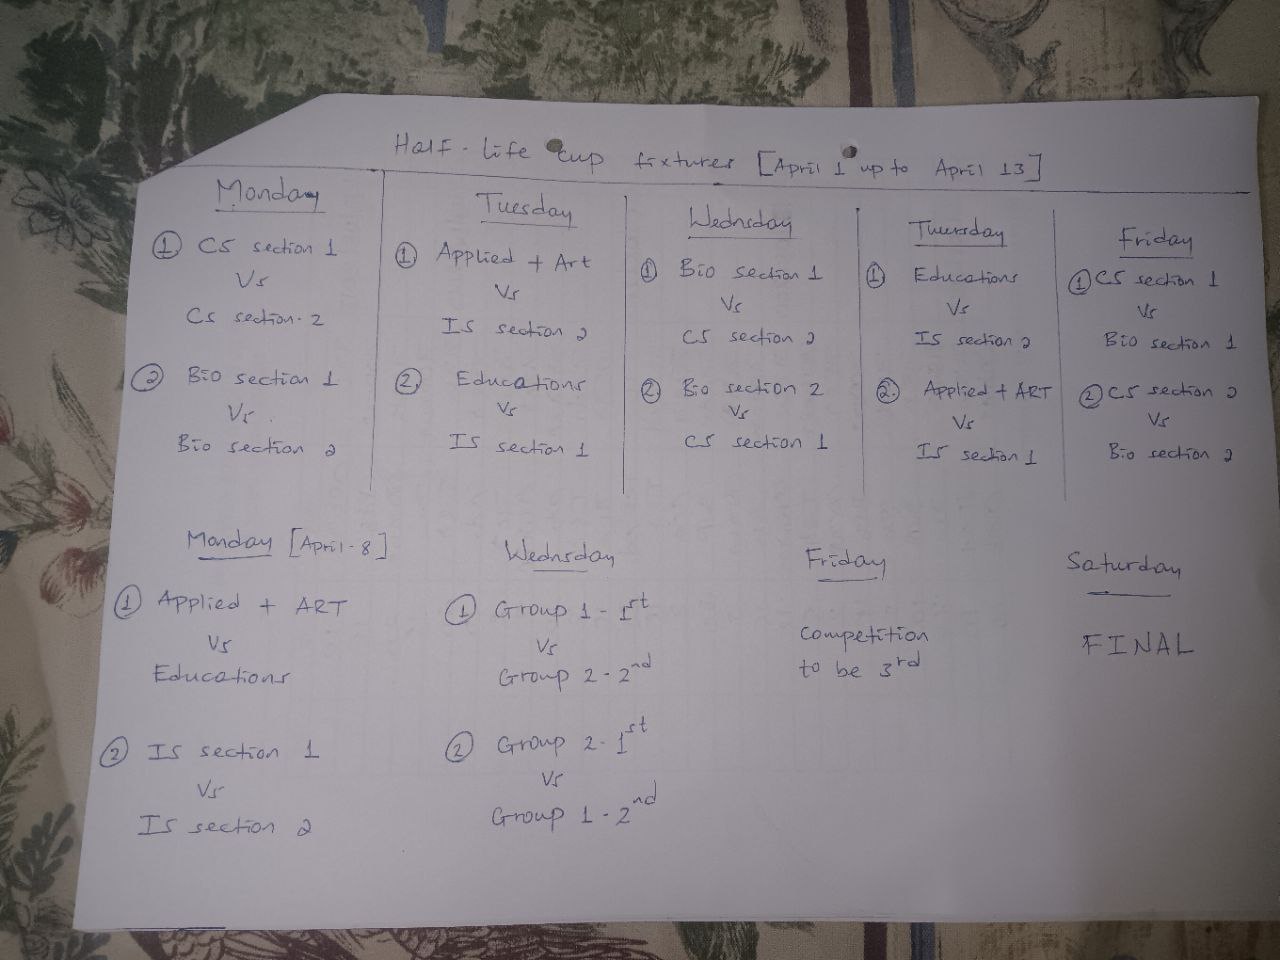 Half-Life cup fixtures [April 1 up to April 13]
Monday
① CS section 1
Vs
CS section-2
② Bio section 1
Vs.
Bio section 2
Tuesday
① Applied + Art
Vs
IS section 2
② Educations
Vs
IS section 1
Wednsday
① Bio section 1
Vs
CS section 2
② Bio section 2
Vs
CS section 1
Thursday
① Educations
Vs
IS section 2
② Applied + ART
Vs
IS section 1
Friday
① CS section 1
Vs
Bio section 1
② CS section 2
Vs
Bio section 2
Monday [April-8]
① Applied + ART
Vs
Educations
② IS section 1
Vs
IS section 2
Wednsday
① Group 1-1st
Vs
Group 2-2nd
② Group 2-1st
Vs
Group 1-2nd
Friday
Competition
to be 3rd
Saturday
FINAL